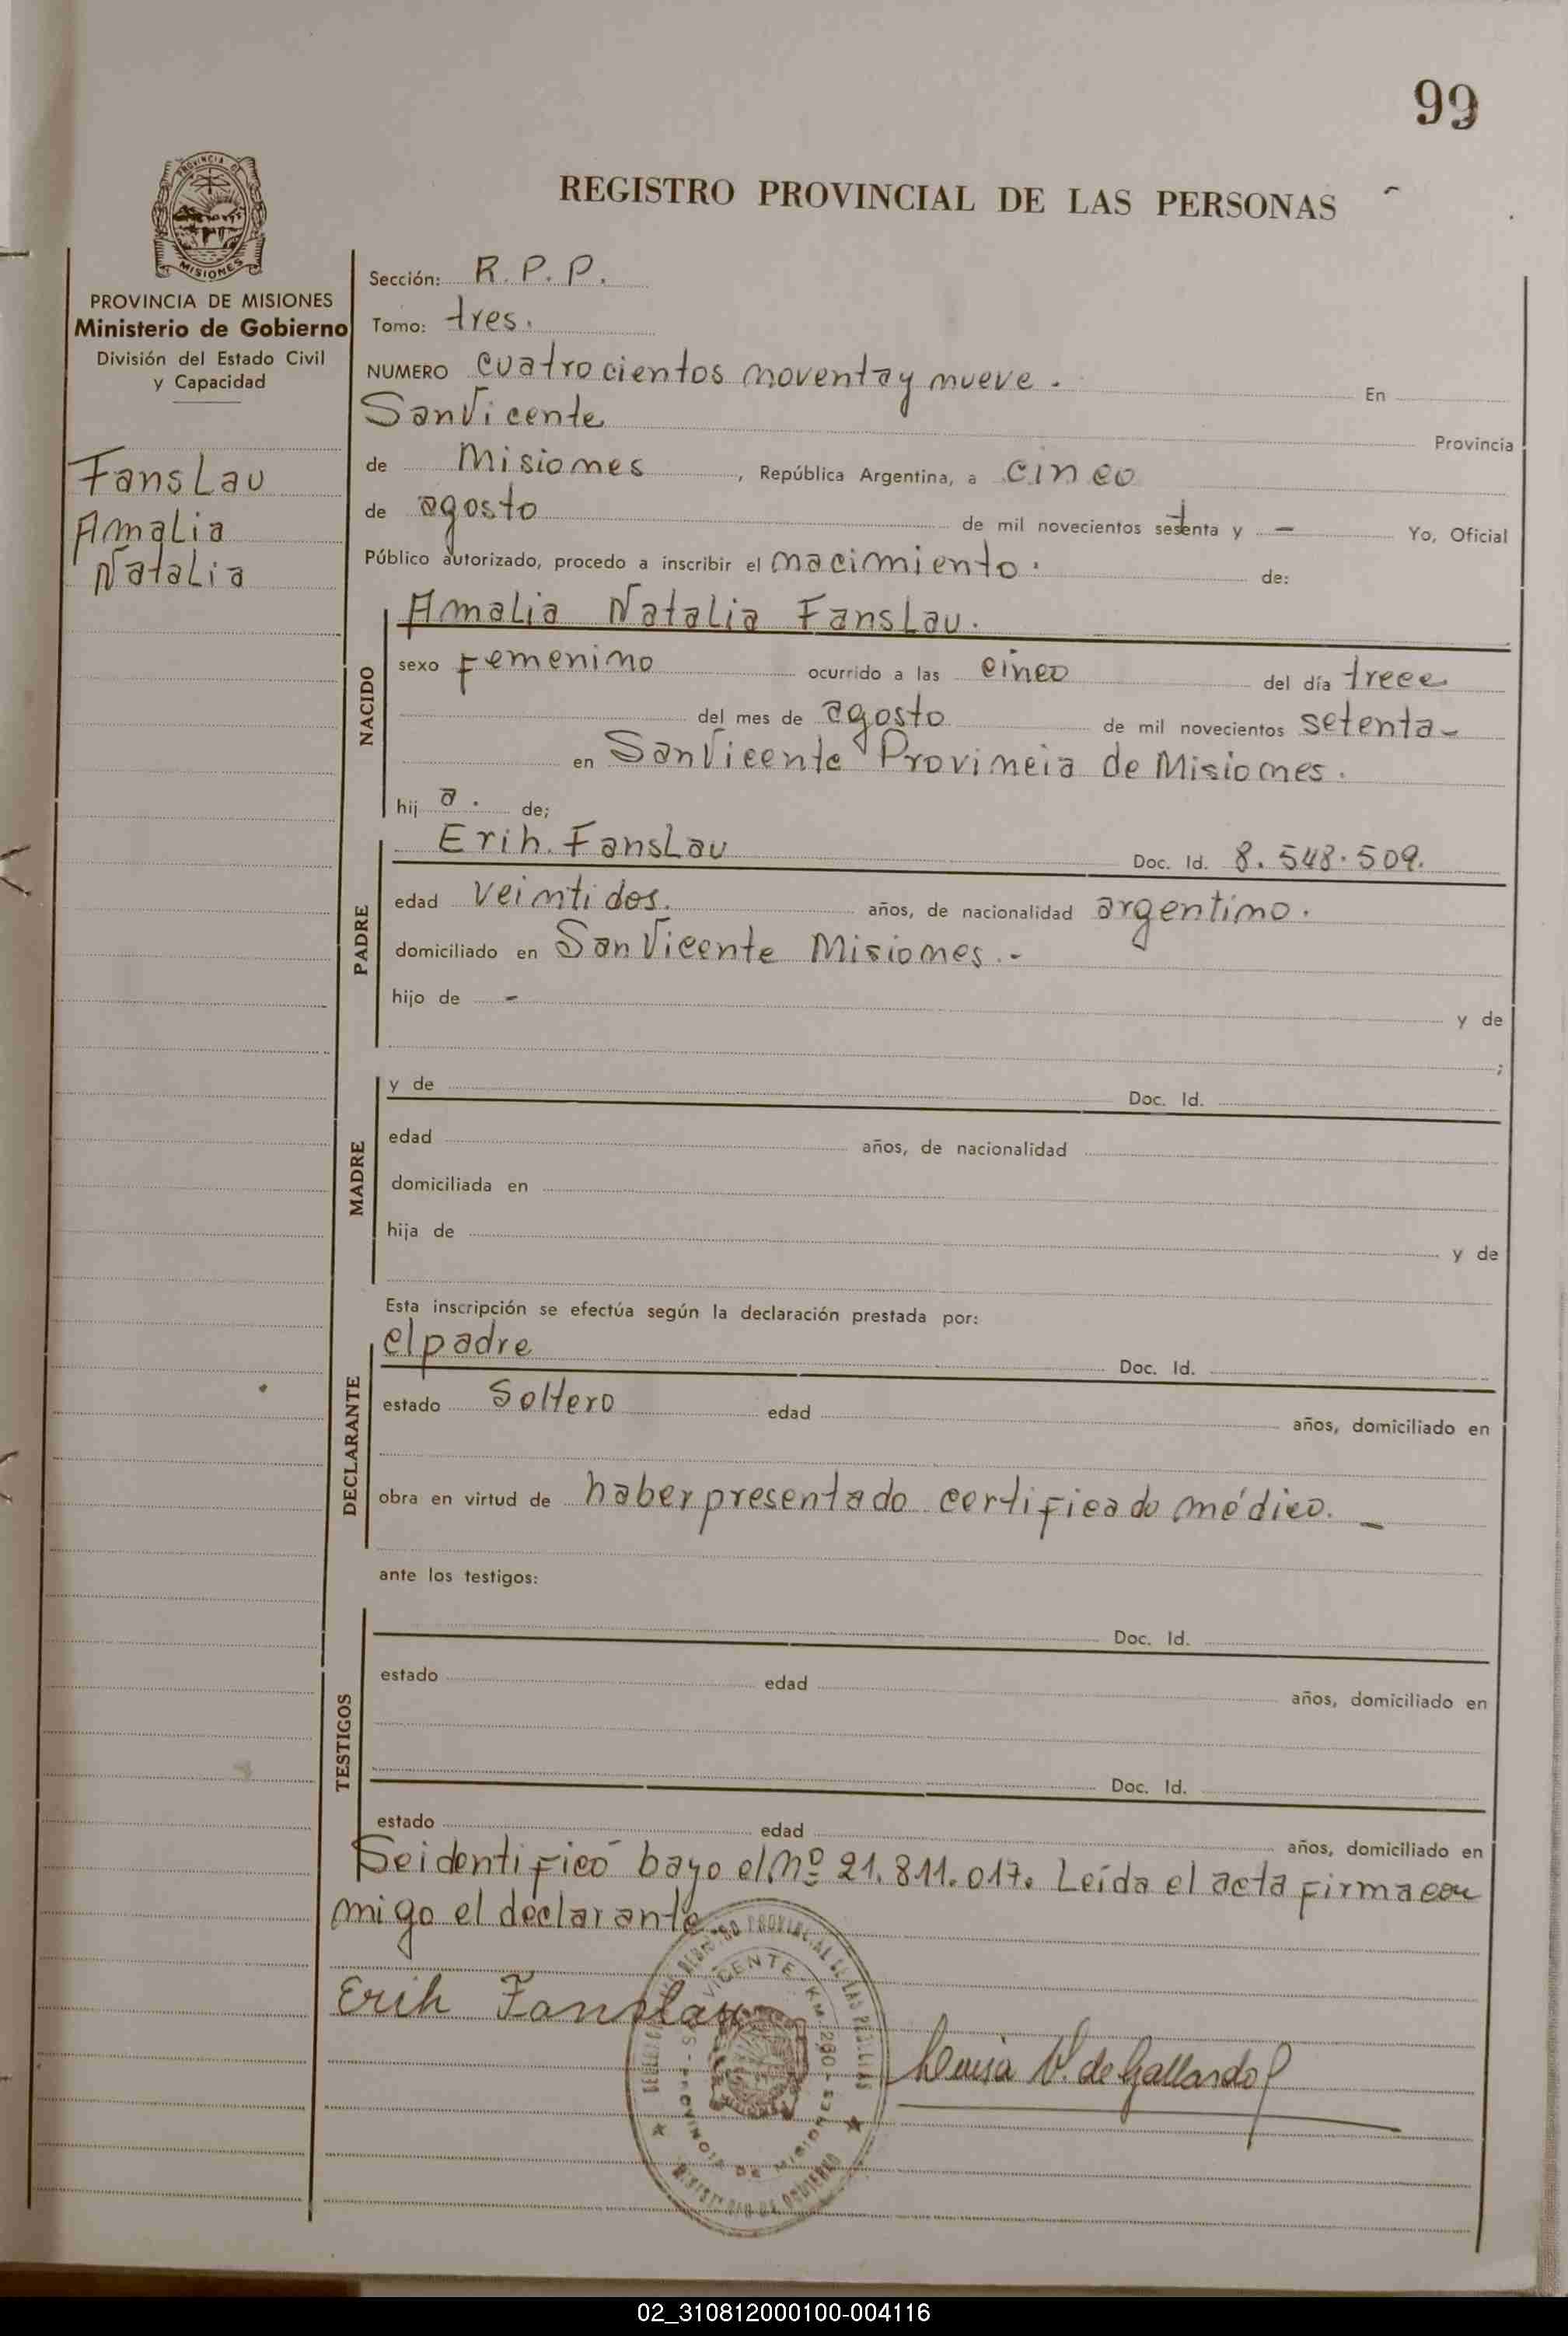 99
REGISTRO PROVINCIAL DE LAS PERSONAS
PROVINCIA DE MISIONES
Ministerio de Gobierno
División del Estado Civil
y Capacidad
Fanslau
Amalia
Natalia
Sección: R.P.P.
Tomo: tres.
NUMERO cuatrocientos noventa y nueve. En
San Vicente Provincia
de Misiones, República Argentina, a cinco
de agosto de mil novecientos setenta y - Yo, Oficial
Público autorizado, procedo a inscribir el nacimiento. de:
NACIDO
Amalia Natalia Fanslau.
sexo femenino ocurrido a las cinco del día trece
del mes de agosto de mil novecientos setenta-
en San Vicente Provincia de Misiones.
hij a. de;
PADRE
Erih. Fanslau Doc. Id. 8.548.509.
edad veintidos. años, de nacionalidad argentino.
domiciliado en San Vicente Misiones.-
hijo de - y de
;
MADRE
y de Doc. Id.
edad años, de nacionalidad
domiciliada en
hija de y de
Esta inscripción se efectúa según la declaración prestada por:
DECLARANTE
el padre Doc. Id.
estado Soltero edad años, domiciliado en
obra en virtud de haber presentado certificado médico. -
ante los testigos:
TESTIGOS
Doc. Id.
estado edad años, domiciliado en
Doc. Id.
estado edad años, domiciliado en
Se identificó bayo el nº 21.811.017. Leída el acta firma con
migo el declarante.
Erih Fanslau
Luisa V. de Gallardo
VICENTE KM. 280
PROVINCIA DE MISIONES
MINISTERIO DE GOBIERNO
02_310812000100-004116